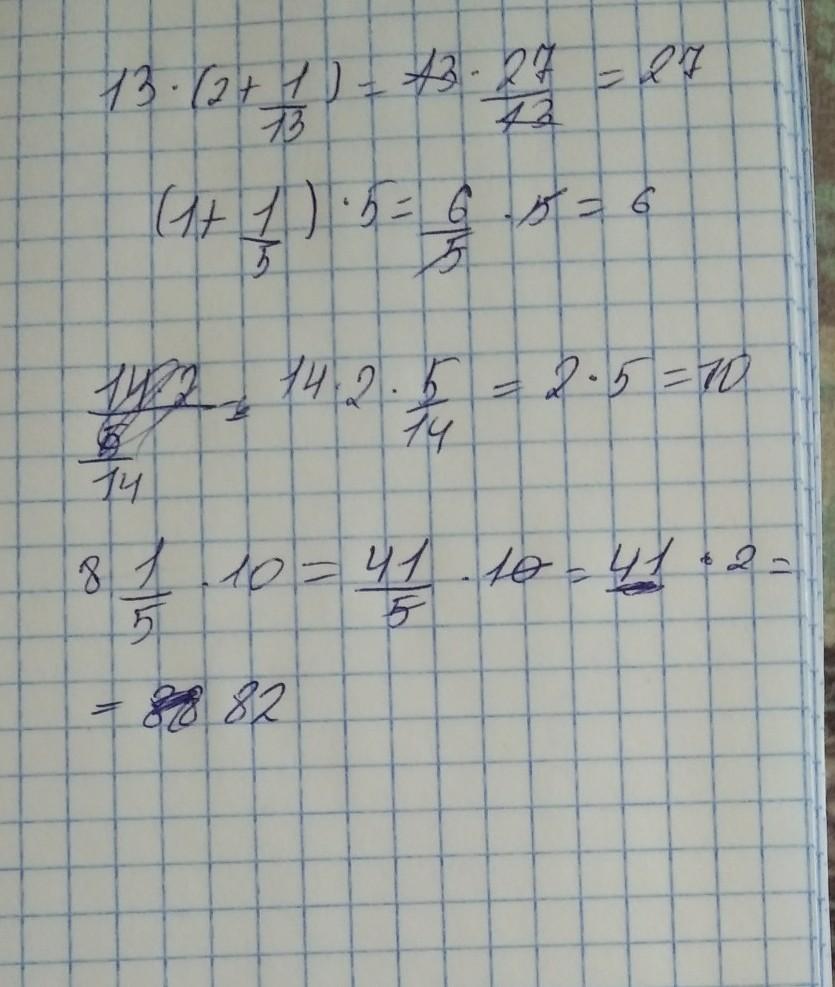 13 · (2 + 1/13) = 13 · 27/13 = 27
(1 + 1/5) · 5 = 6/5 · 5 = 6
14 · 2 · 5/14 = 2 · 5 = 10
8 1/5 · 10 = 41/5 · 10 = 41 · 2 =
= 82